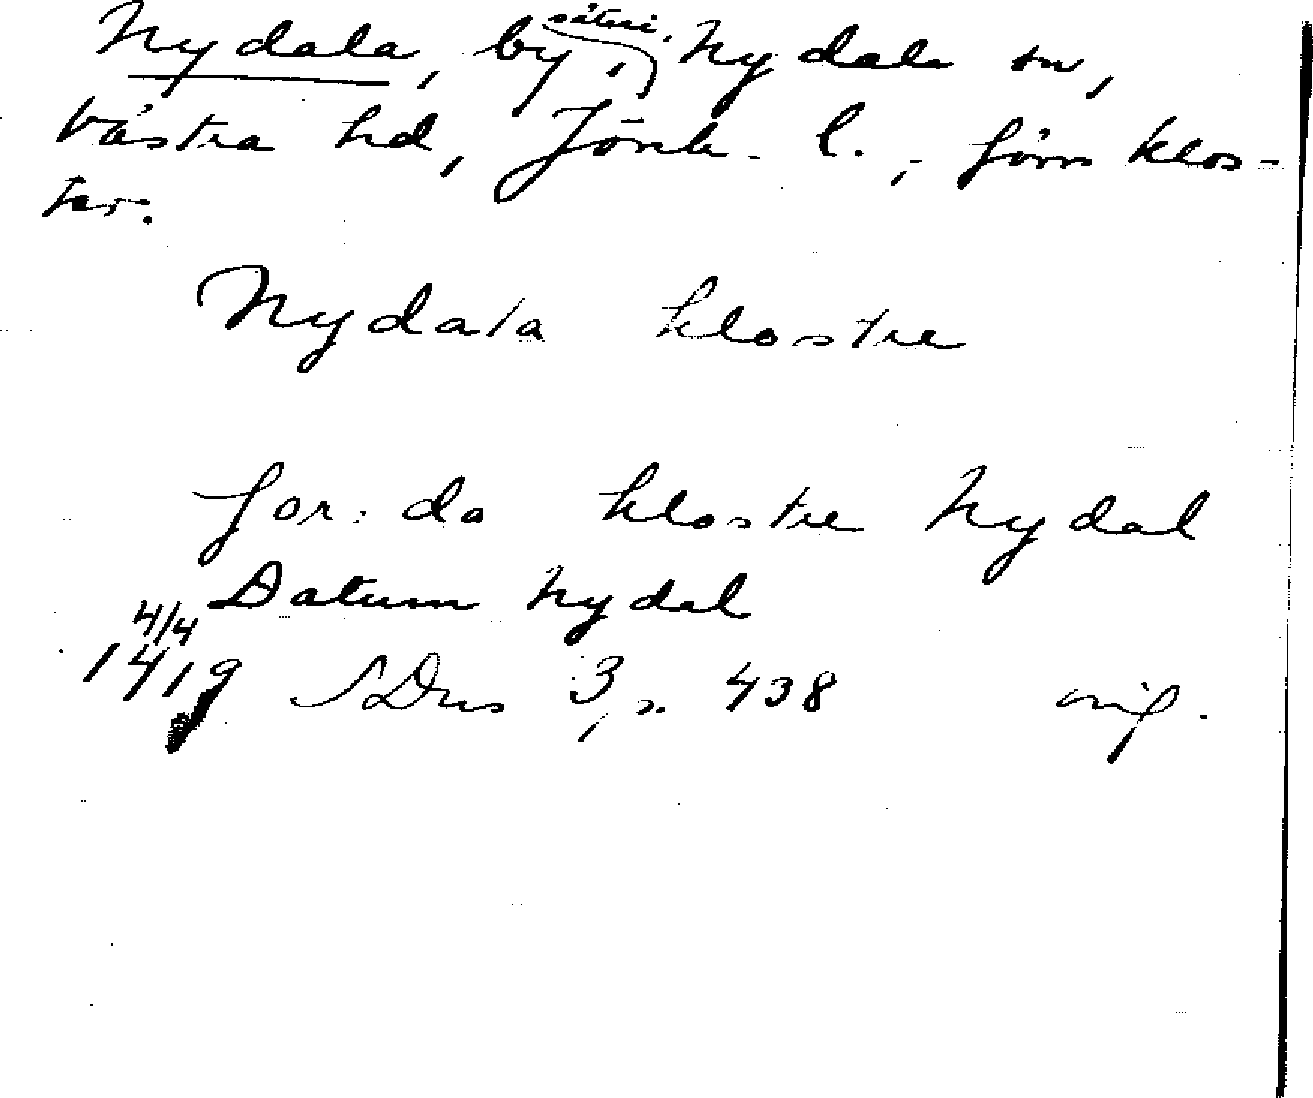 Nydala, by, säteri, Nydala sn,
Västra hd, Jönk. l.; förr klos-
ter.
Nydala klostre
for: da klostre Nydal
Datum Nydal
4/4
1419 SDns 3, s. 438 orig.